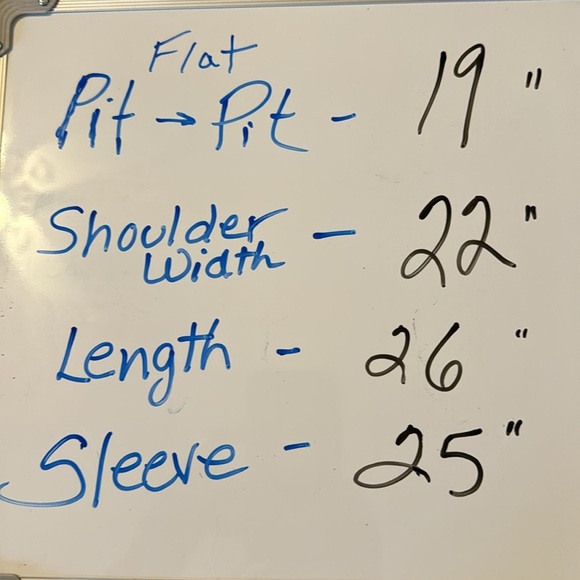 Flat
Pit → Pit - 19"
Shoulder
Width - 22"
Length - 26"
Sleeve - 25"